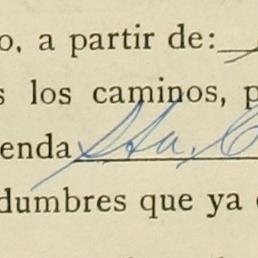 o, a partir de:
s los caminos, p
enda Sta. C
dumbres que ya